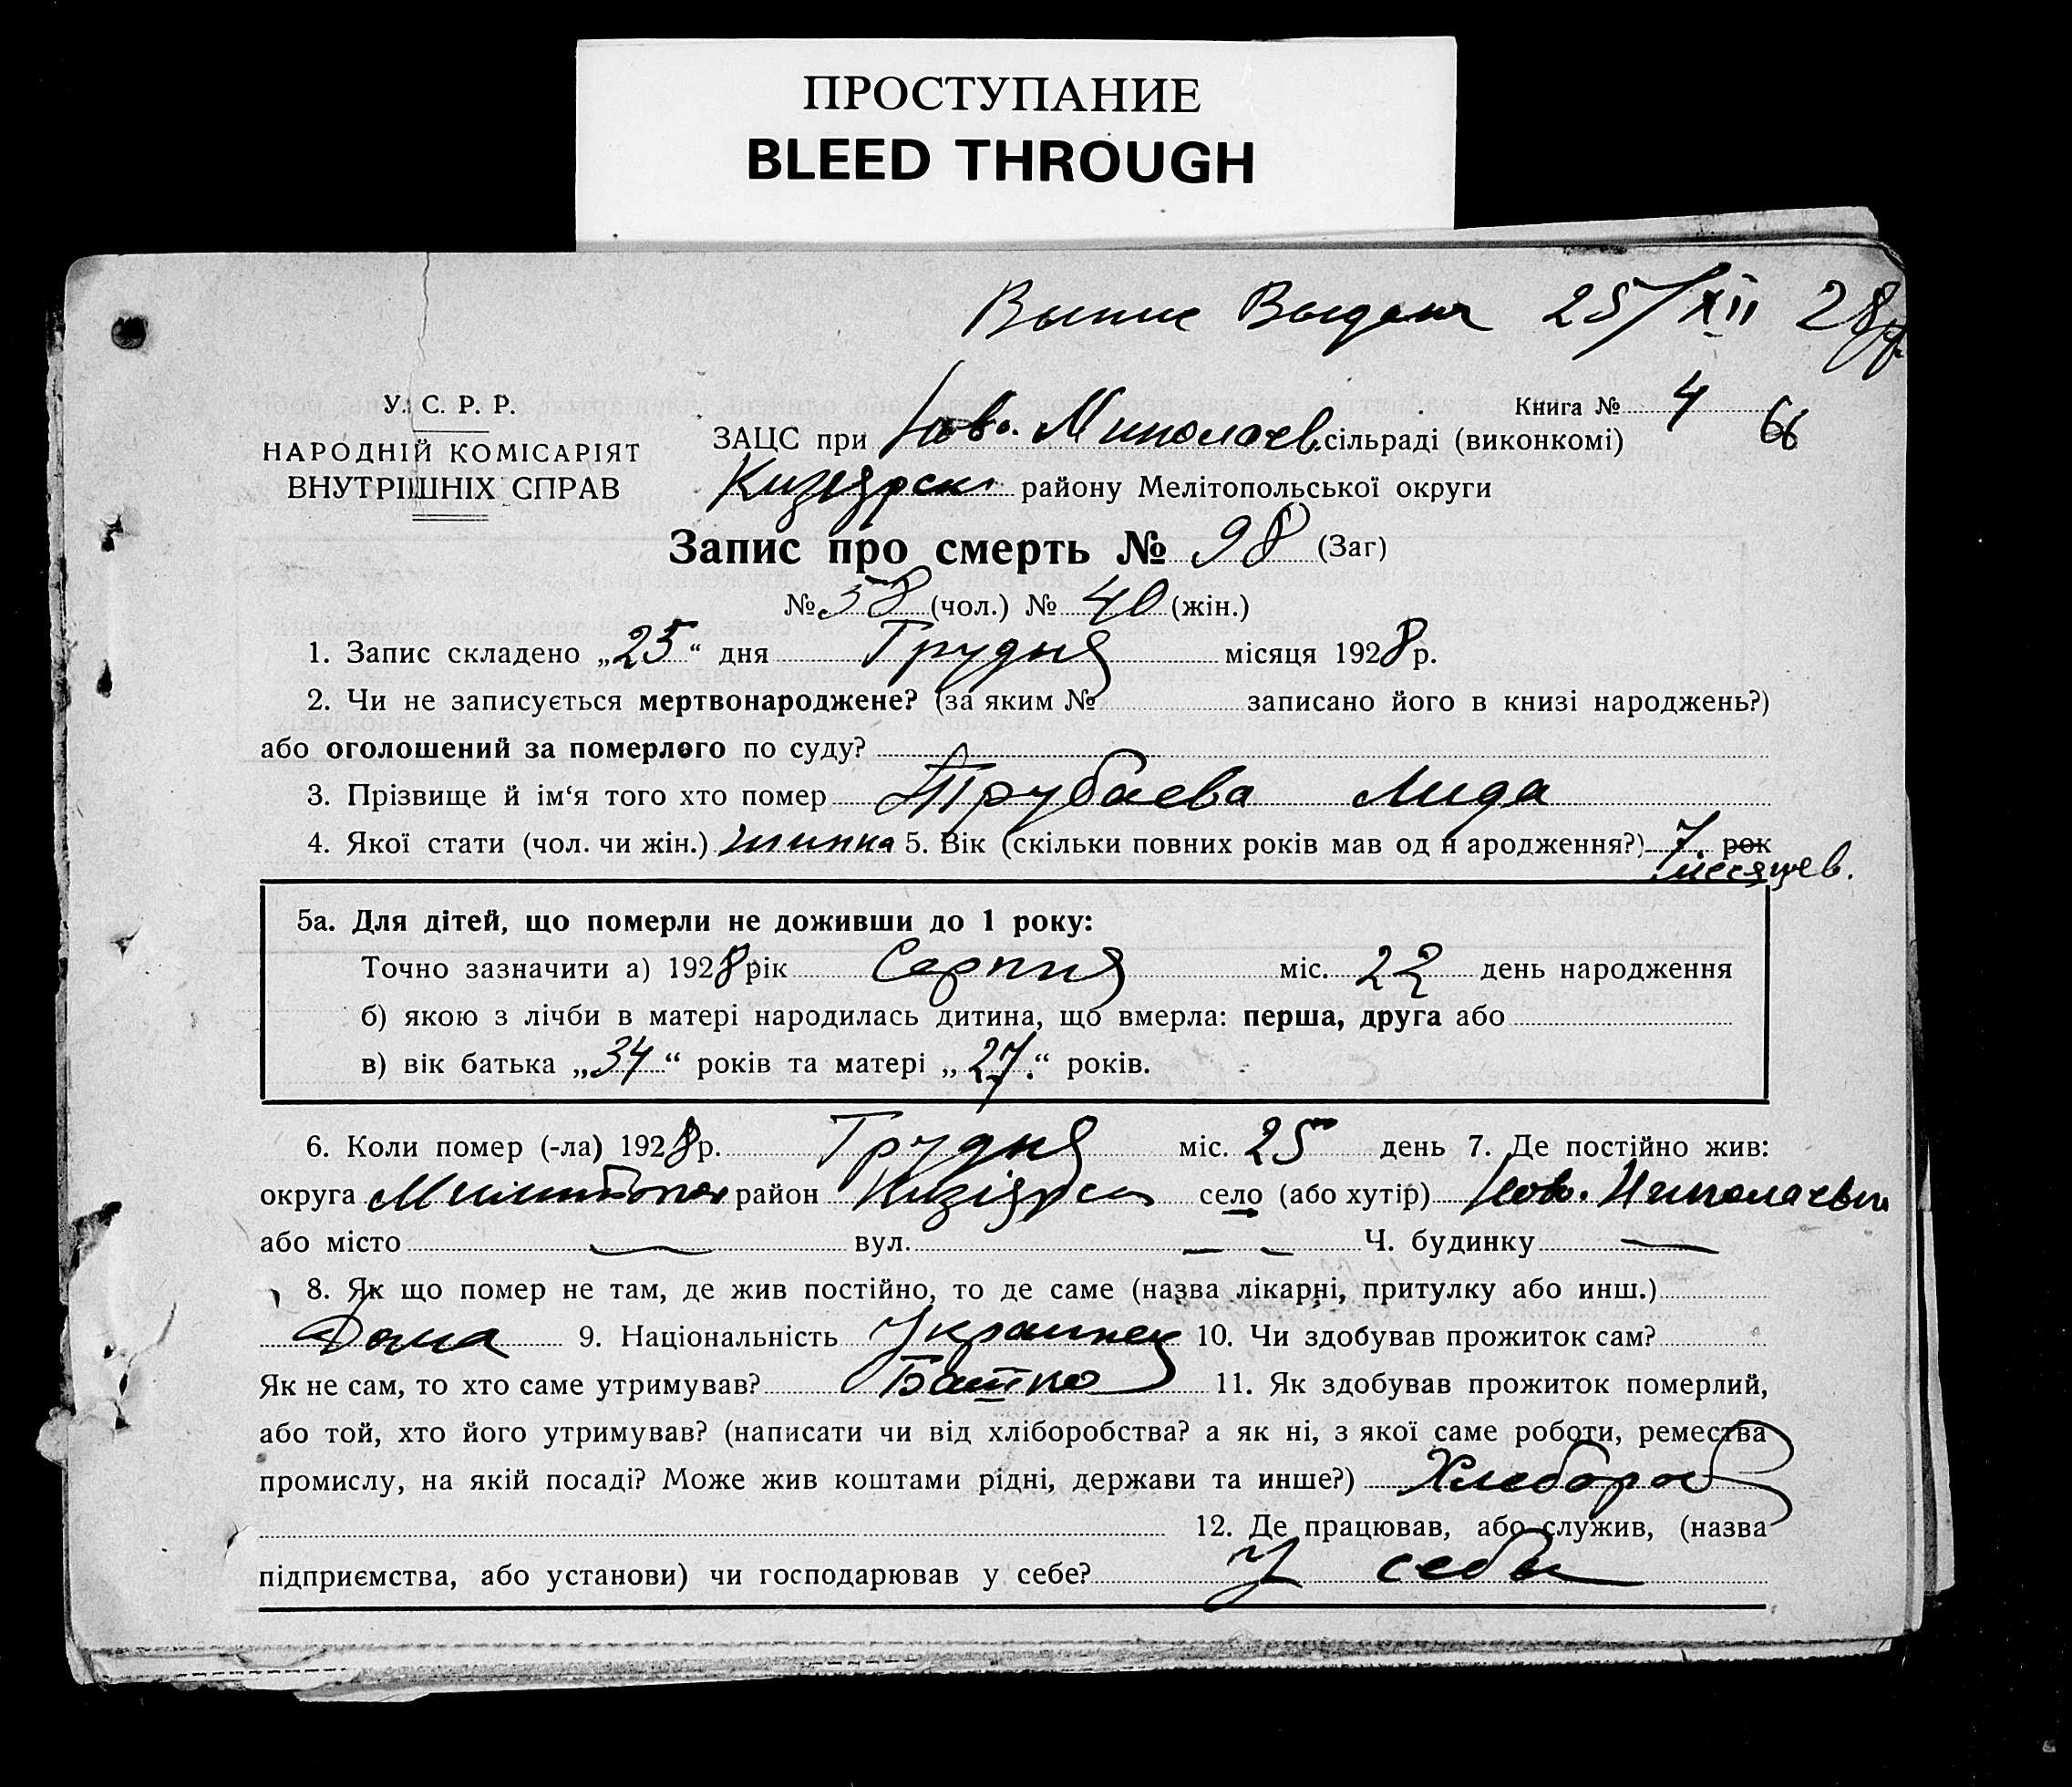 ПРОСТУПАНИЕ
BLEED THROUGH
Выпис Выдана 25/XII 28 р.
У. С. Р. Р.
НАРОДНІЙ КОМІСАРІЯТ
ВНУТРІШНІХ СПРАВ
Книга № 4
66
ЗАЦС при Ново. Миколаев. сільраді (виконкомі)
Кизеярск району Мелітопольської округи
Запис про смерть № 98 (Заг)
№ 58 (чол.) № 40 (жін.)
1. Запис складено „25“ дня Грудня місяця 1928 р.
2. Чи не записується мертвонароджене? (за яким № записано його в книзі народжень?)
або оголошений за померлого по суду?
3. Прізвище й ім‘я того хто помер Трубаева Лида
4. Якої стати (чол. чи жін.) жинка 5. Вік (скільки повних років мав од н ародження?) 7 рок
месяцев.
5а. Для дітей, що померли не доживши до 1 року:
Точно зазначити а) 1928 рік Серпня міс. 22 день народження
б) якою з лічби в матері народилась дитина, що вмерла: перша, друга або
в) вік батька „34“ років та матері „27.“ років.
6. Коли помер (-ла) 1928 р. Грудня міс. 25 день 7. Де постійно жив:
округа район село (або хутір) Ново. Николаевка
або місто — вул. — — Ч. будинку —
8. Як що помер не там, де жив постійно, то де саме (назва лікарні, притулку або инш.)
Дома 9. Національність Украинец 10. Чи здобував прожиток сам?
Як не сам, то хто саме утримував? Батко 11. Як здобував прожиток померлий,
або той, хто його утримував? (написати чи від хліборобства? а як ні, з якої саме роботи, ремества
промислу, на якій посаді? Може жив коштами рідні, держави та инше?) Хлебороб
12. Де працював, або служив, (назва
підприємства, або установи) чи господарював у себе? У себе